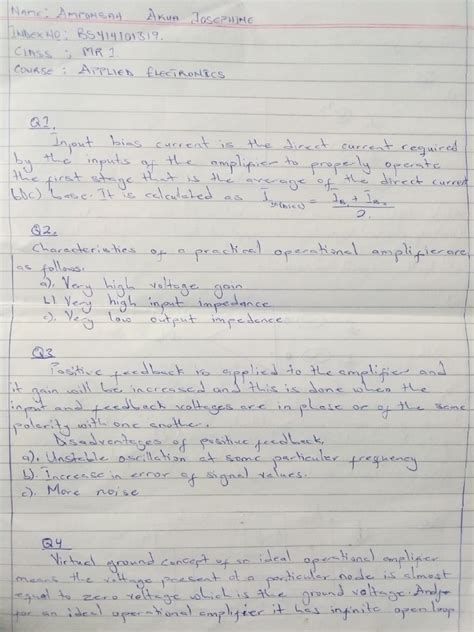 NAME: AMPONSAH AKUA JOSEPHINE
INDEX NO: BS414101319.
CLASS : MR 1
COURSE : APPLIED ELECTRONICS
Q1.
Input bias current is the direct current required
by the inputs of the amplifier to properly operate
the first stage that is the average of the direct current
(DC) base. It is calculated as I_IN(BIAS) = I_B1 + I_B2 / 2
Q2.
Characteristics of a practical operational amplifier are
as follows.
a). Very high voltage gain
b) Very high input impedance
c). Very low output impedance
Q3
Positive feedback is applied to the amplifier and
it gain will be increased and this is done when the
input and feedback voltages are in phase or of the same
polarity with one another.
Disadvantages of positive feedback,
a). Unstable oscillation at some particular frequency
b). Increase in error of signal values.
c). More noise
Q4
Virtual ground concept of an ideal operational amplifier
means the voltage present at a particular node is almost
equal to zero voltage which is the ground voltage. And
for an ideal operational amplifier it has infinite open loop